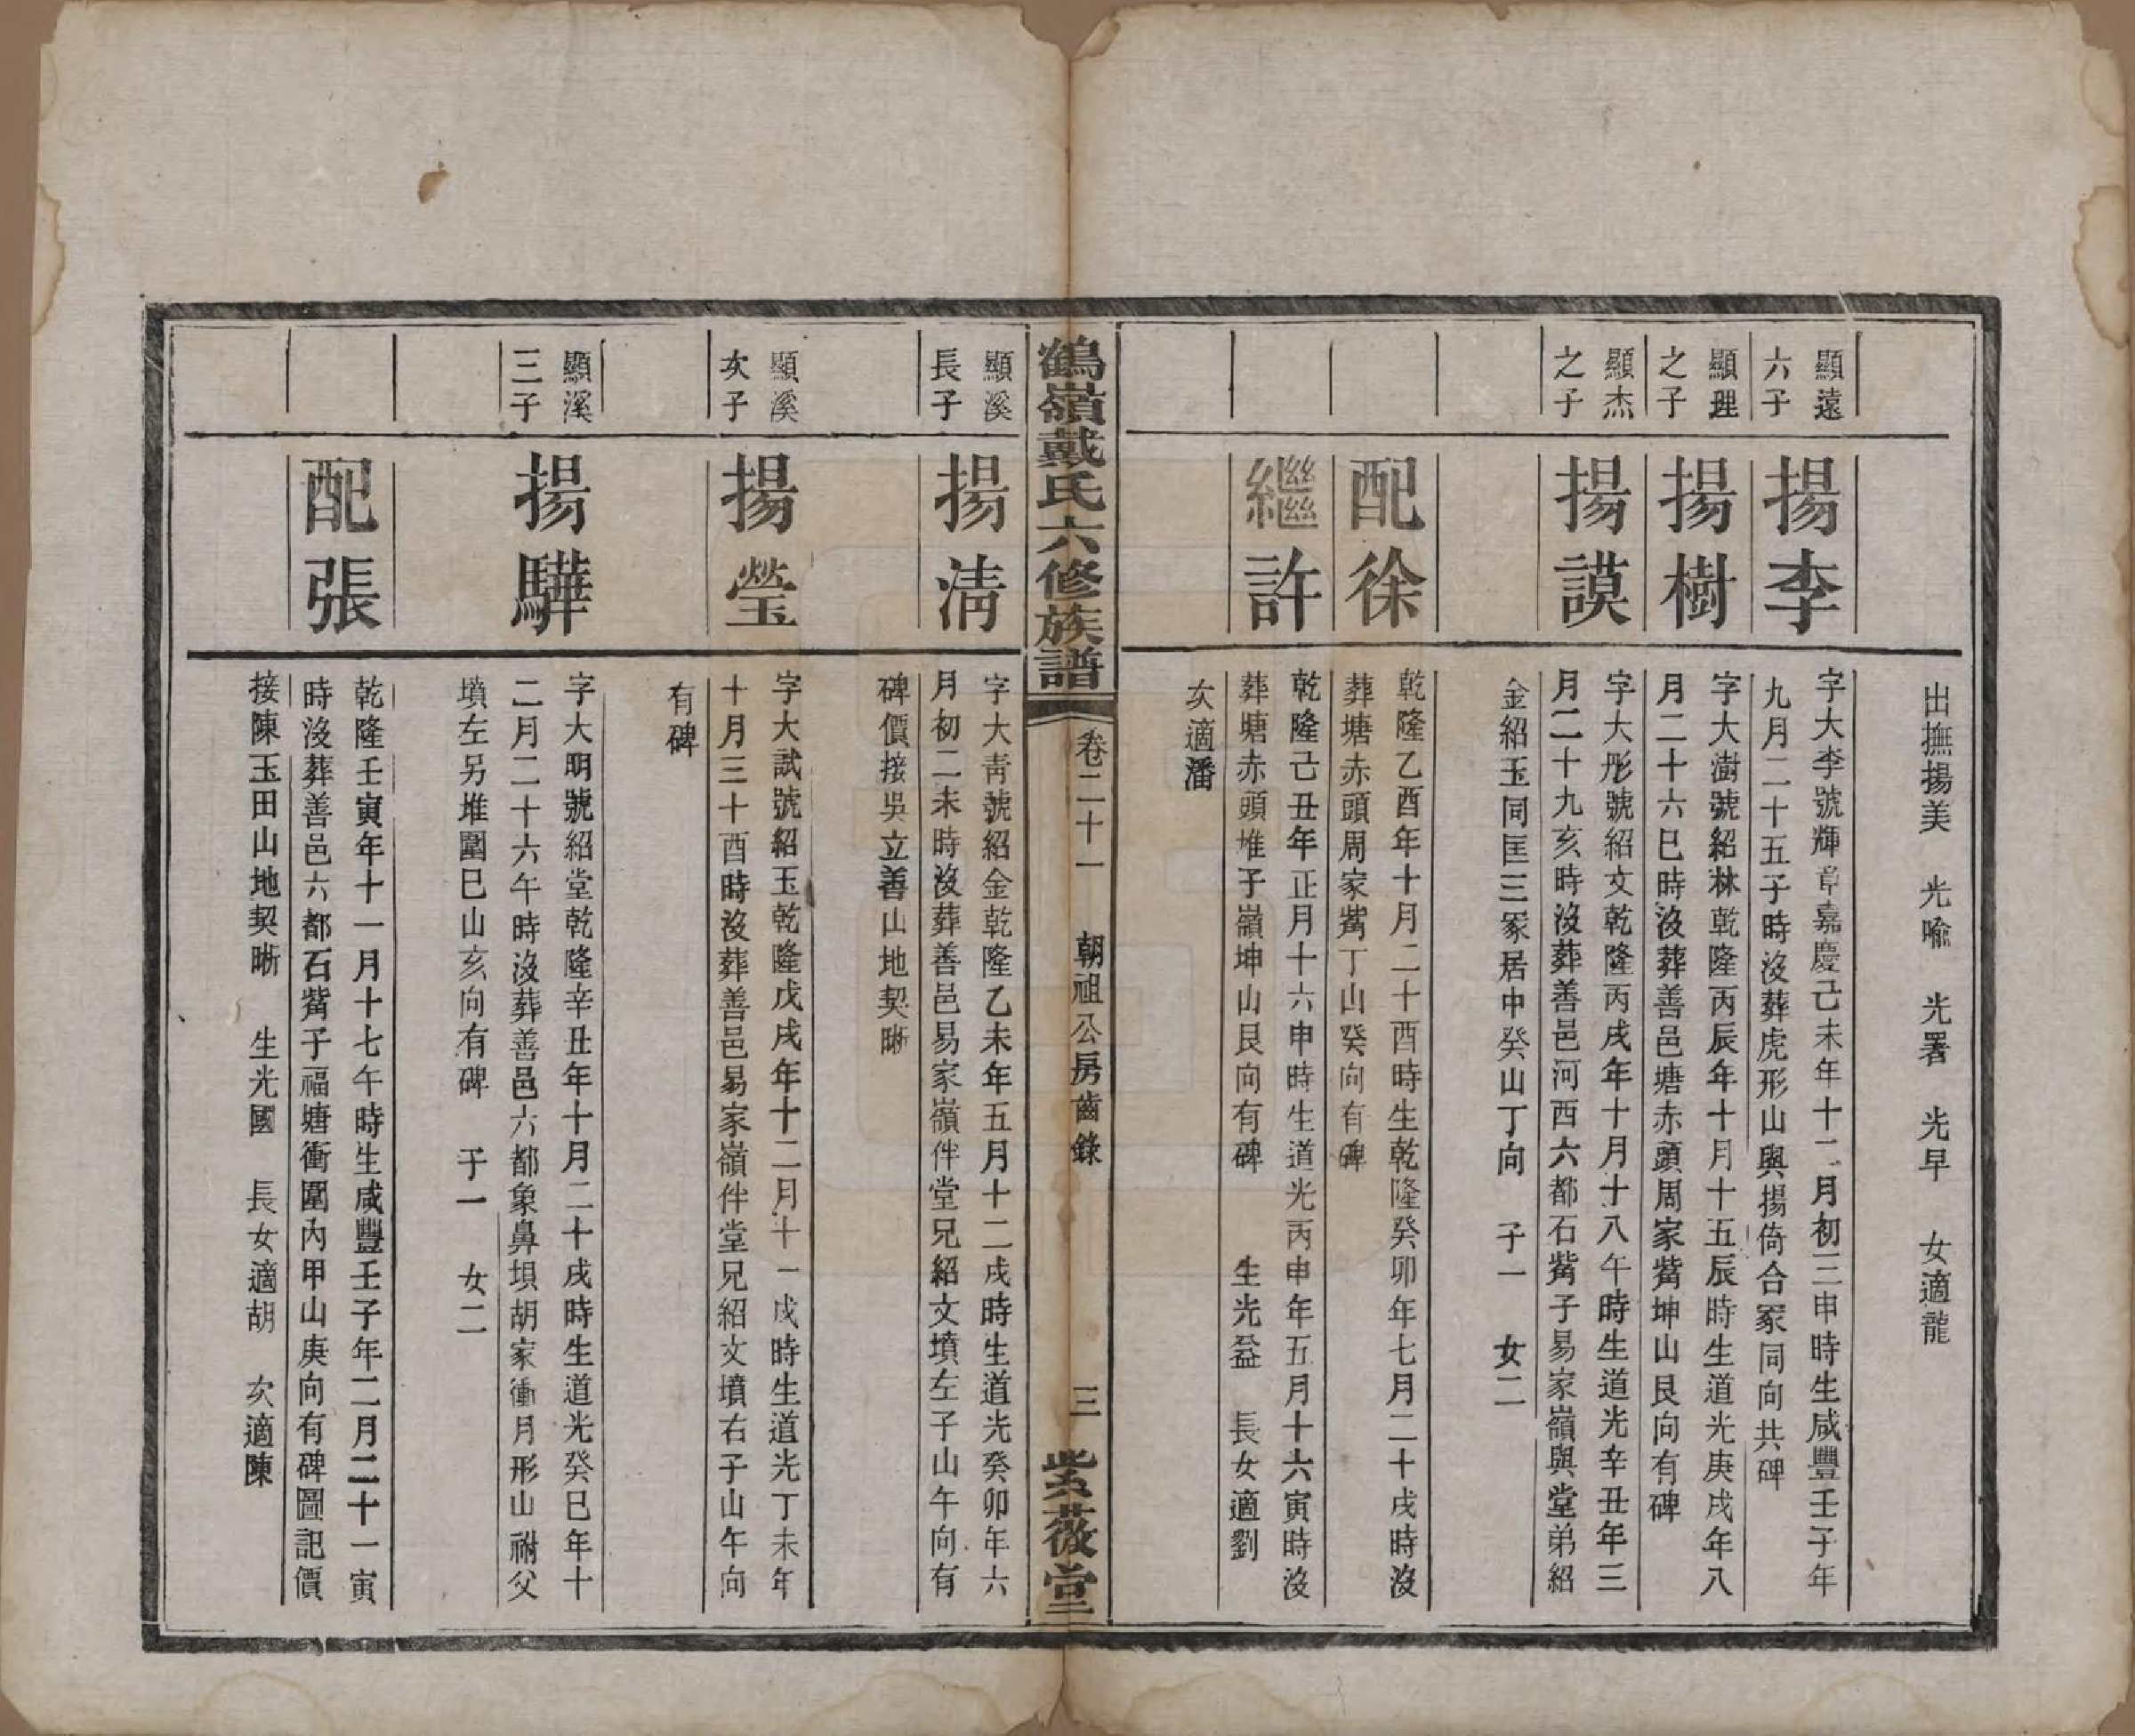 出撫揚美　光喩　光署　光早　女適龍
顯遠
六子
揚李
字大李號輝章嘉慶己未年十二月初三申時生咸豐壬子年
九月二十五子時沒葬虎形山與揚倚合冢同向共碑
顯理
之子
揚樹
字大澍號紹林乾隆丙辰年十月十五辰時生道光庚戌年八
月二十六巳時沒葬善邑塘赤頭周家觜坤山艮向有碑
顯杰
之子
揚謨
字大彤號紹文乾隆丙戌年十月十八午時生道光辛丑年三
月二十九亥時沒葬善邑河西六都石觜子易家嶺與堂弟紹
金紹玉同匡三冢居中癸山丁向　子一　女二
配徐
乾隆乙酉年十月二十酉時生乾隆癸卯年七月二十戌時沒
葬塘赤頭周家觜丁山癸向有碑
繼許
乾隆己丑年正月十六申時生道光丙申年五月十六寅時沒
葬塘赤頭堆子嶺坤山艮向有碑　生光益　長女適劉
次適潘
鶴嶺戴氏六修族譜
卷二十一　朝祖公房齒錄　三
紫薇堂
顯溪
長子
揚清
字大靑號紹金乾隆乙未年五月十二戌時生道光癸卯年六
月初二未時沒葬善邑易家嶺伴堂兄紹文墳左子山午向有
碑價接吳立善山地契晰
顯溪
次子
揚瑩
字大試號紹玉乾隆戊戌年十二月十一戌時生道光丁未年
十月三十酉時沒葬善邑易家嶺伴堂兄紹文墳右子山午向
有碑
顯溪
三子
揚驊
字大明號紹堂乾隆辛丑年十月二十戌時生道光癸巳年十
二月二十六午時沒葬善邑六都象鼻垻胡家衝月形山祔父
墳左另堆圍巳山亥向有碑　子一　女二
配張
乾隆壬寅年十一月十七午時生咸豐壬子年二月二十一寅
時沒葬善邑六都石觜子福塘衝圍內甲山庚向有碑圖記價
接陳玉田山地契晰　生光國　長女適胡　次適陳